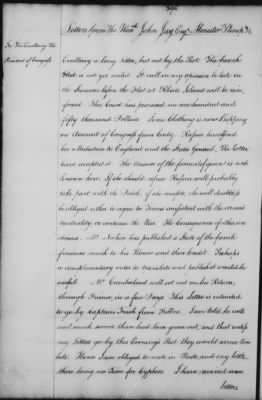 Letters from The Honble John Jay Esqr Minister Plenipy &c.
To His Excellency The
President of Congress
Excellency a long Letter, but not by the Post. The french
Fleet is not yet sailed. It will in my opinion be late in
the Summer before the Fleet at Rhode Island will be rein-
forced. This Court has promised me one hundred and
fifty thousand Dollars. Some Cloathing is now shipping
on Account of Congress from Cadiz. Russia has offered
her Mediation to England and the States General. The latter
have accepted it. The answer of the former if given is not
known here. If she should refuse Russia will probably
take part with the Dutch, if she accepts, she will doubtless
be obliged either to agree to Terms consistent with the armed
neutrality, or continue the War. The Consequence of either is
obvious. Mr Necker has published a State of the french
finances much to his Honor and their Credit. Perhaps
a complimentary order to translate and publish would be
useful. Mr Cumberland will set out on his Return,
through France, in a few Days. This Letter is intended
to go by Captain Trash from Bilboa. I am told he will
wait much sooner than had been given out, and that unless
my Letters go by this Evening's Post they would arrive too
late. Hence I am obliged to write in Haste, and say little,
there being no Time for Cyphers. I have received some
Letters